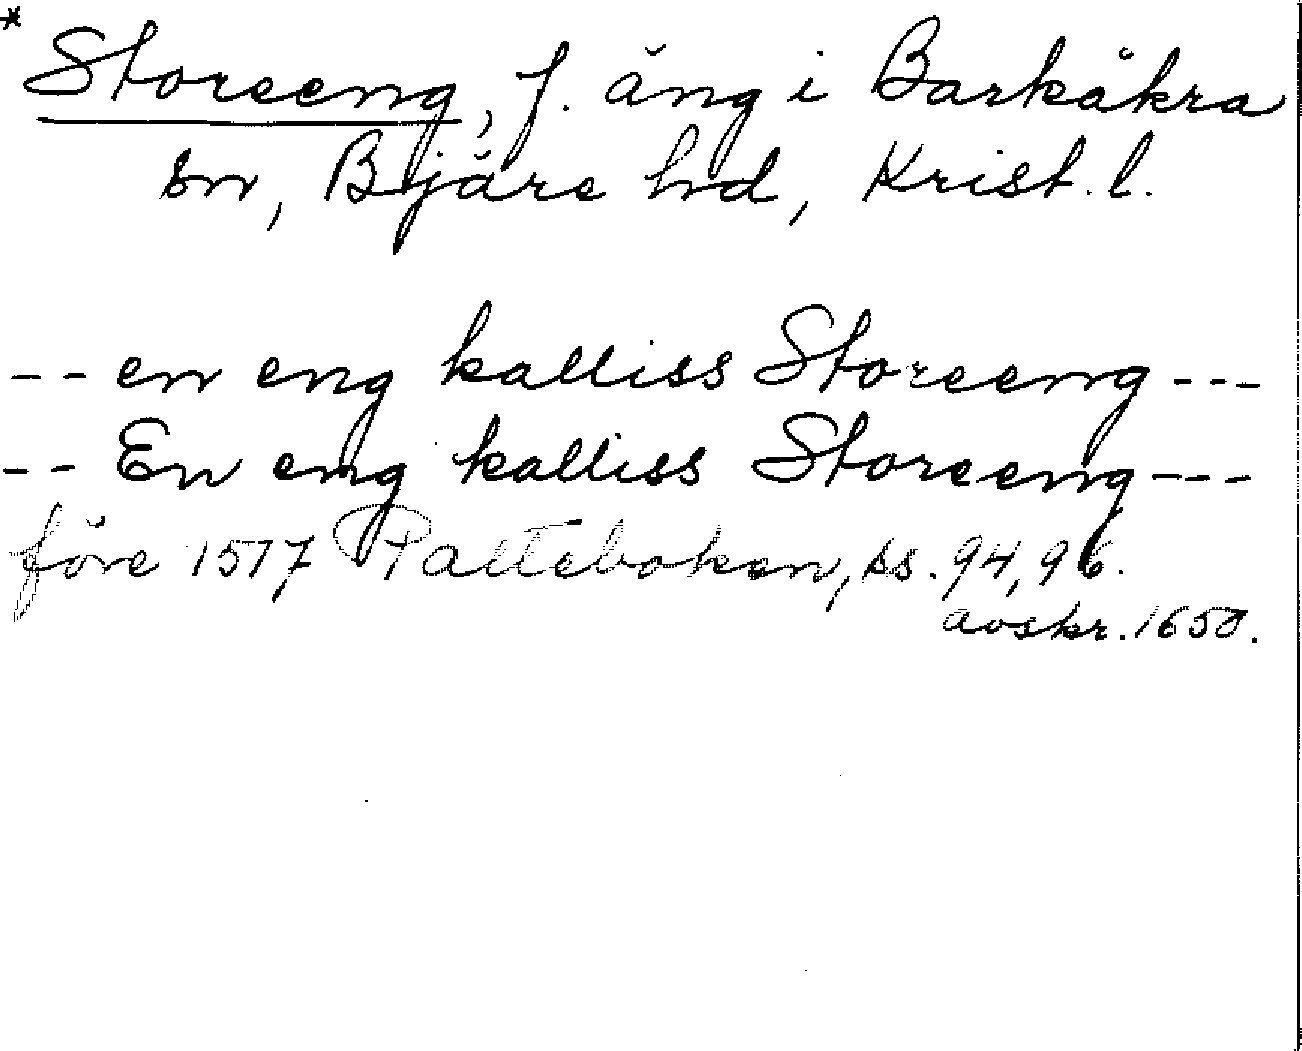 * Storeeng, f. äng i Barkåkra
sn, Bjäre hd, Krist. l.
-- en eng kalliss Storeeng ---
-- En eng kalliss Storeeng ---
före 1577 Palteboken, ss. 94, 96.
avskr. 1650.